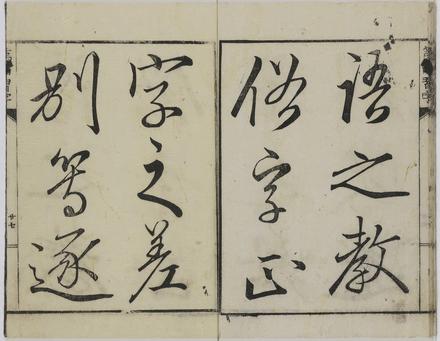 語之教
俗字正
字之差
別等逐
廿七